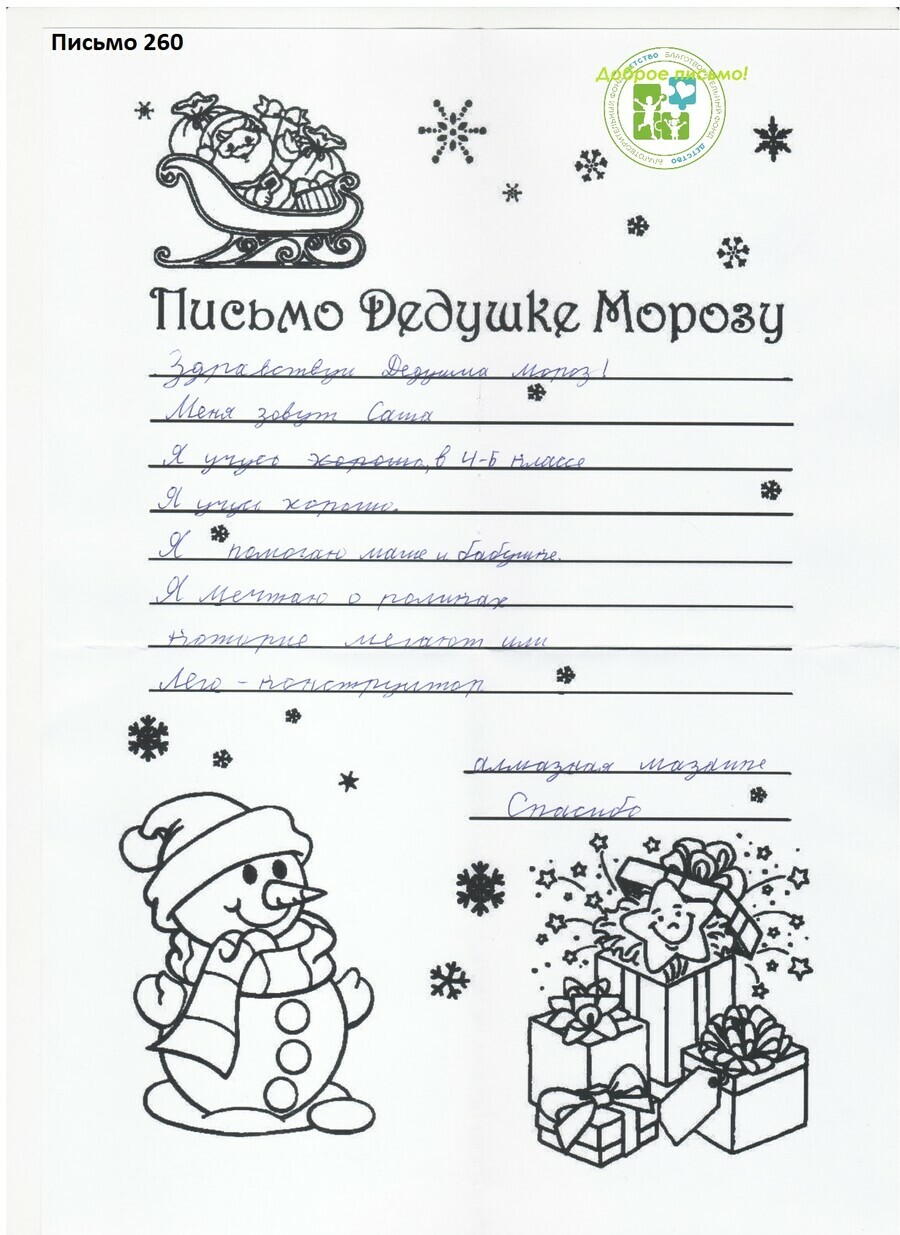 Письмо 260
Доброе письмо!
БЛАГОТВОРИТЕЛЬНЫЙ ФОНД ДЕТСТВО БЛАГОТВОРИТЕЛЬНЫЙ ФОНД ДЕТСТВО
Письмо Дедушке Морозу
Здравствуй Дедушка Мороз!
Меня зовут Саша
Я учусь хорошо, в 4-Б классе
Я учусь хорошо.
Я помогаю маме и бабушке.
Я мечтаю о роликах
которие мегают или
Лего - конструктор
алмазная мазаике
Спасибо